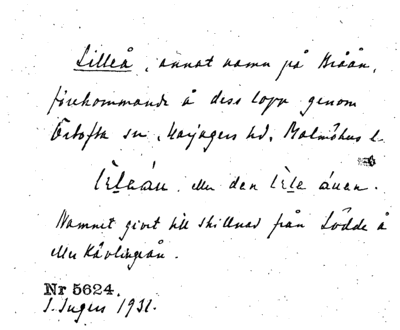 Lilleå, annat namn på Bråån,
förekommande å dess lopp genom
Örtofta sn, Harjagers hd, Malmöhus l.
lìleáu. eller den lìle áuen.
Namnet givet till skillnad från Lödde å
eller Kävlingeån.
Nr 5624.
S. Ingers 1931.